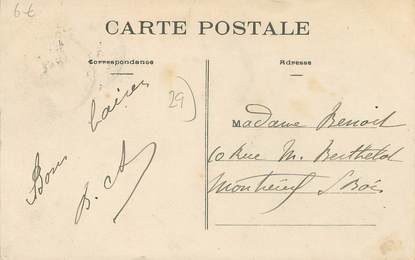 6-€
CARTE POSTALE
Correspondance
Adresse
29)
Bons baisers
Madame Benoit
10 Rue M. Berthelot
Montreuil S/Bois